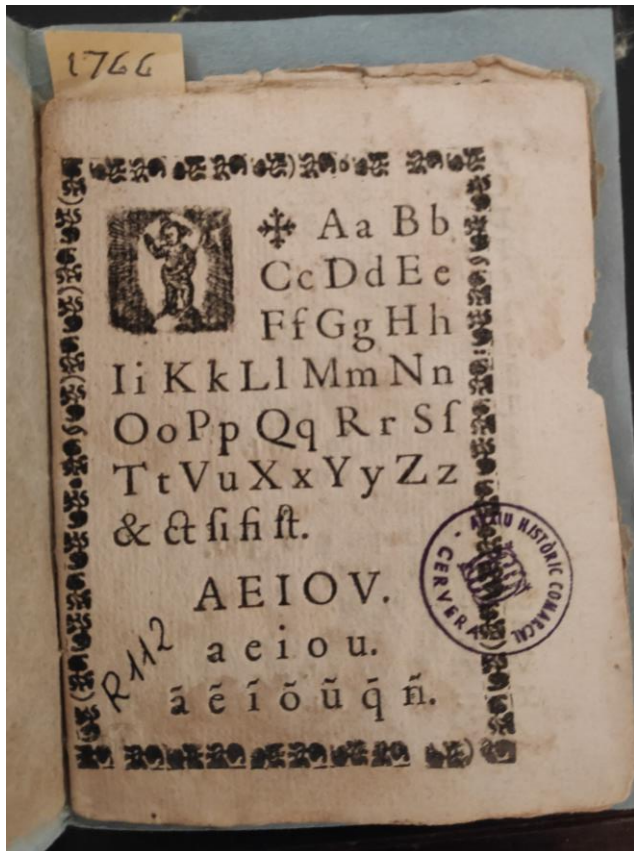 1766
✠ Aa Bb
Cc Dd Ee
Ff Gg Hh
Ii Kk Ll Mm Nn
Oo Pp Qq Rr Sſ
Tt Vu Xx Yy Zz
& ct ſi fi ſt.
AEIOV.
a e i o u.
ã ẽ ĩ õ ũ q̃ ñ.
R112
ARXIU HISTÒRIC COMARCAL
- CERVERA -